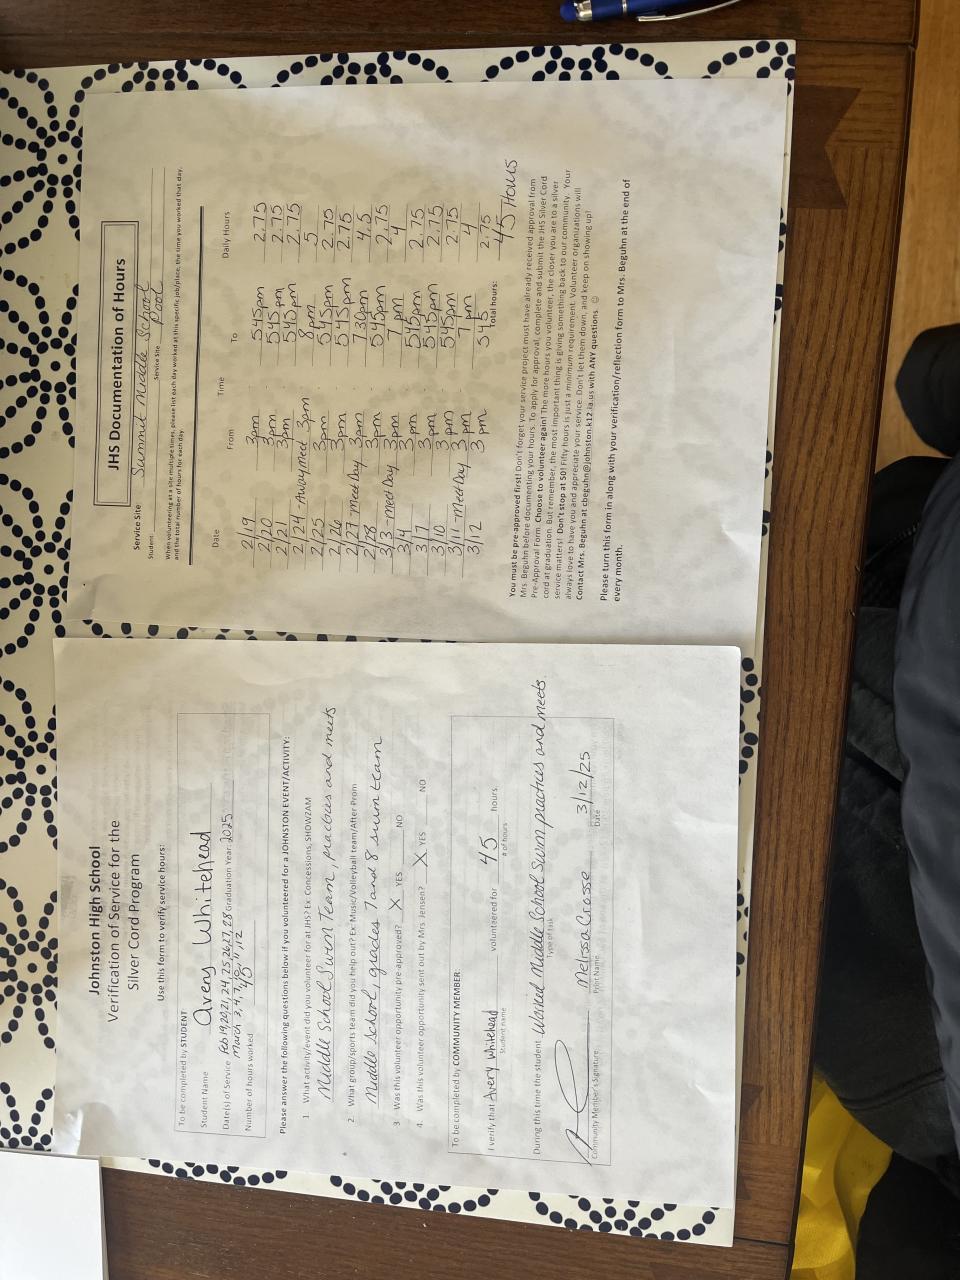 Johnston High School
Verification of Service for the
Silver Cord Program
Use this form to verify service hours:
To be completed by STUDENT
Student Name Avery Whitehead
Date(s) of Service Feb 19,20,21,24,25,26,27,28 Graduation Year: 2025
March 3, 4, 7, 10, 11, 12
Number of hours worked 45
Please answer the following questions below if you volunteered for a JOHNSTON EVENT/ACTIVITY:
1. What activity/event did you volunteer for at JHS? Ex: Concessions, SHOWZAM
Middle School Swim Team, practices and meets
2. What group/sports team did you help out? Ex: Music/Volleyball team/After Prom
Middle School, grades 7 and 8 swim team
3. Was this volunteer opportunity pre-approved? X YES NO
4. Was this volunteer opportunity sent out by Mrs. Jensen? X YES NO
To be completed by COMMUNITY MEMBER
I verify that Avery Whitehead volunteered for 45 hours.
Student name # of hours
During this time the student Worked Middle School Swim practices and meets
Type of task
Melissa Crosse 3/12/25
Community Member's Signature Print Name Date
JHS Documentation of Hours
Service Site Summit Middle School
Pool
Student: Service Site
When volunteering at a site multiple times, please list each day worked at this specific job/place, the time you worked that day,
and the total number of hours for each day.
Date Time Daily Hours
From To
2/19 3pm 545pm 2.75
2/20 3pm 545pm 2.75
2/21 3pm 545pm 2.75
2/24 - Away Meet 3pm 8pm 5
2/25 3pm 545pm 2.75
2/26 3pm 545pm 2.75
2/27 Meet Day 3pm 730pm 4.5
2/28 3pm 545pm 2.75
3/3 - Meet Day 3pm 7pm 4
3/4 3pm 545pm 2.75
3/7 3pm 545pm 2.75
3/10 3pm 545pm 2.75
3/11 - Meet Day 3pm 7pm 4
3/12 3pm 545 2.75
Total hours: 45 Hours
You must be pre-approved first! Don't forget your service project must have already received approval from
Mrs. Beguhn before documenting your hours. To apply for approval, complete and submit the JHS Silver Cord
Pre-Approval Form. Choose to volunteer again! The more hours you volunteer, the closer you are to a silver
cord at graduation. But remember, the most important thing is giving something back to our community. Your
service matters! Don't stop at 50! Fifty hours is just a minimum requirement. Volunteer organizations will
always love to have you and appreciate your service. Don't let them down, and keep on showing up!
Contact Mrs. Beguhn at cbeguhn@johnston.k12.ia.us with ANY questions. ☺
Please turn this form in along with your verification/reflection form to Mrs. Beguhn at the end of
every month.